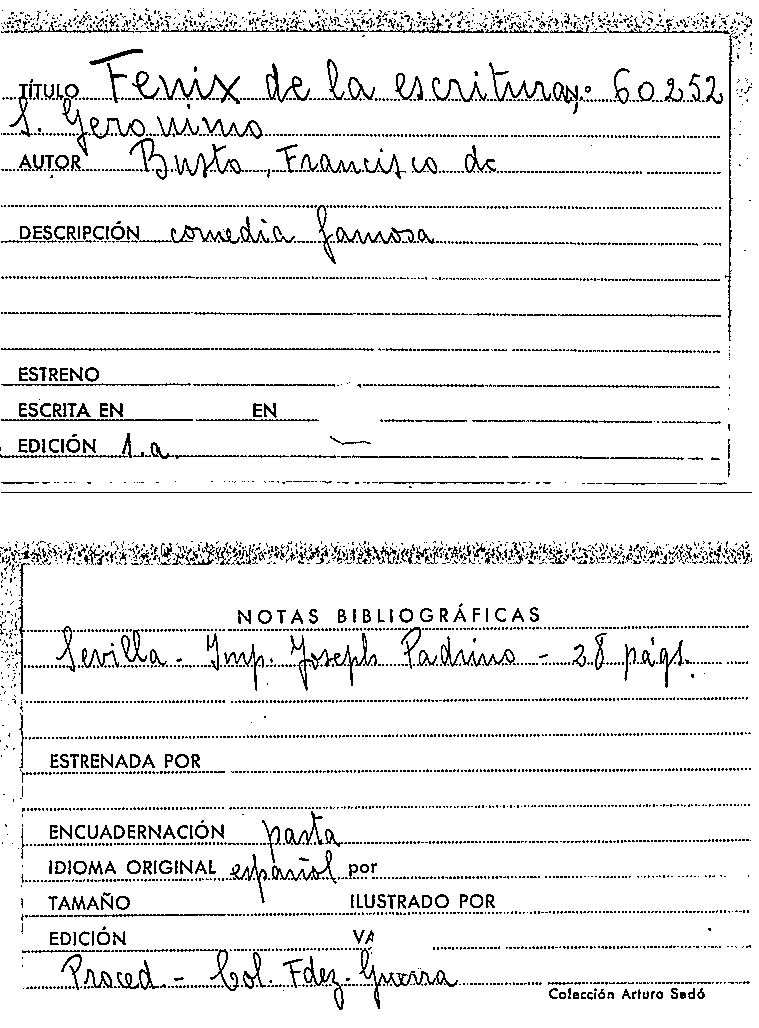 TÍTULO Fenix de la escritura, N.º 60252
S. Geronimo
AUTOR Busto, Francisco de
DESCRIPCIÓN comedia famosa
ESTRENO
ESCRITA EN EN
EDICIÓN 1.a
NOTAS BIBLIOGRÁFICAS
Sevilla - Imp. Joseph Padrino - 28 págs.
ESTRENADA POR
ENCUADERNACIÓN pasta
IDIOMA ORIGINAL español por
TAMAÑO ILUSTRADO POR
EDICIÓN VA
Proced - Col. Fdez-Guerra
Colección Arturo Sedó